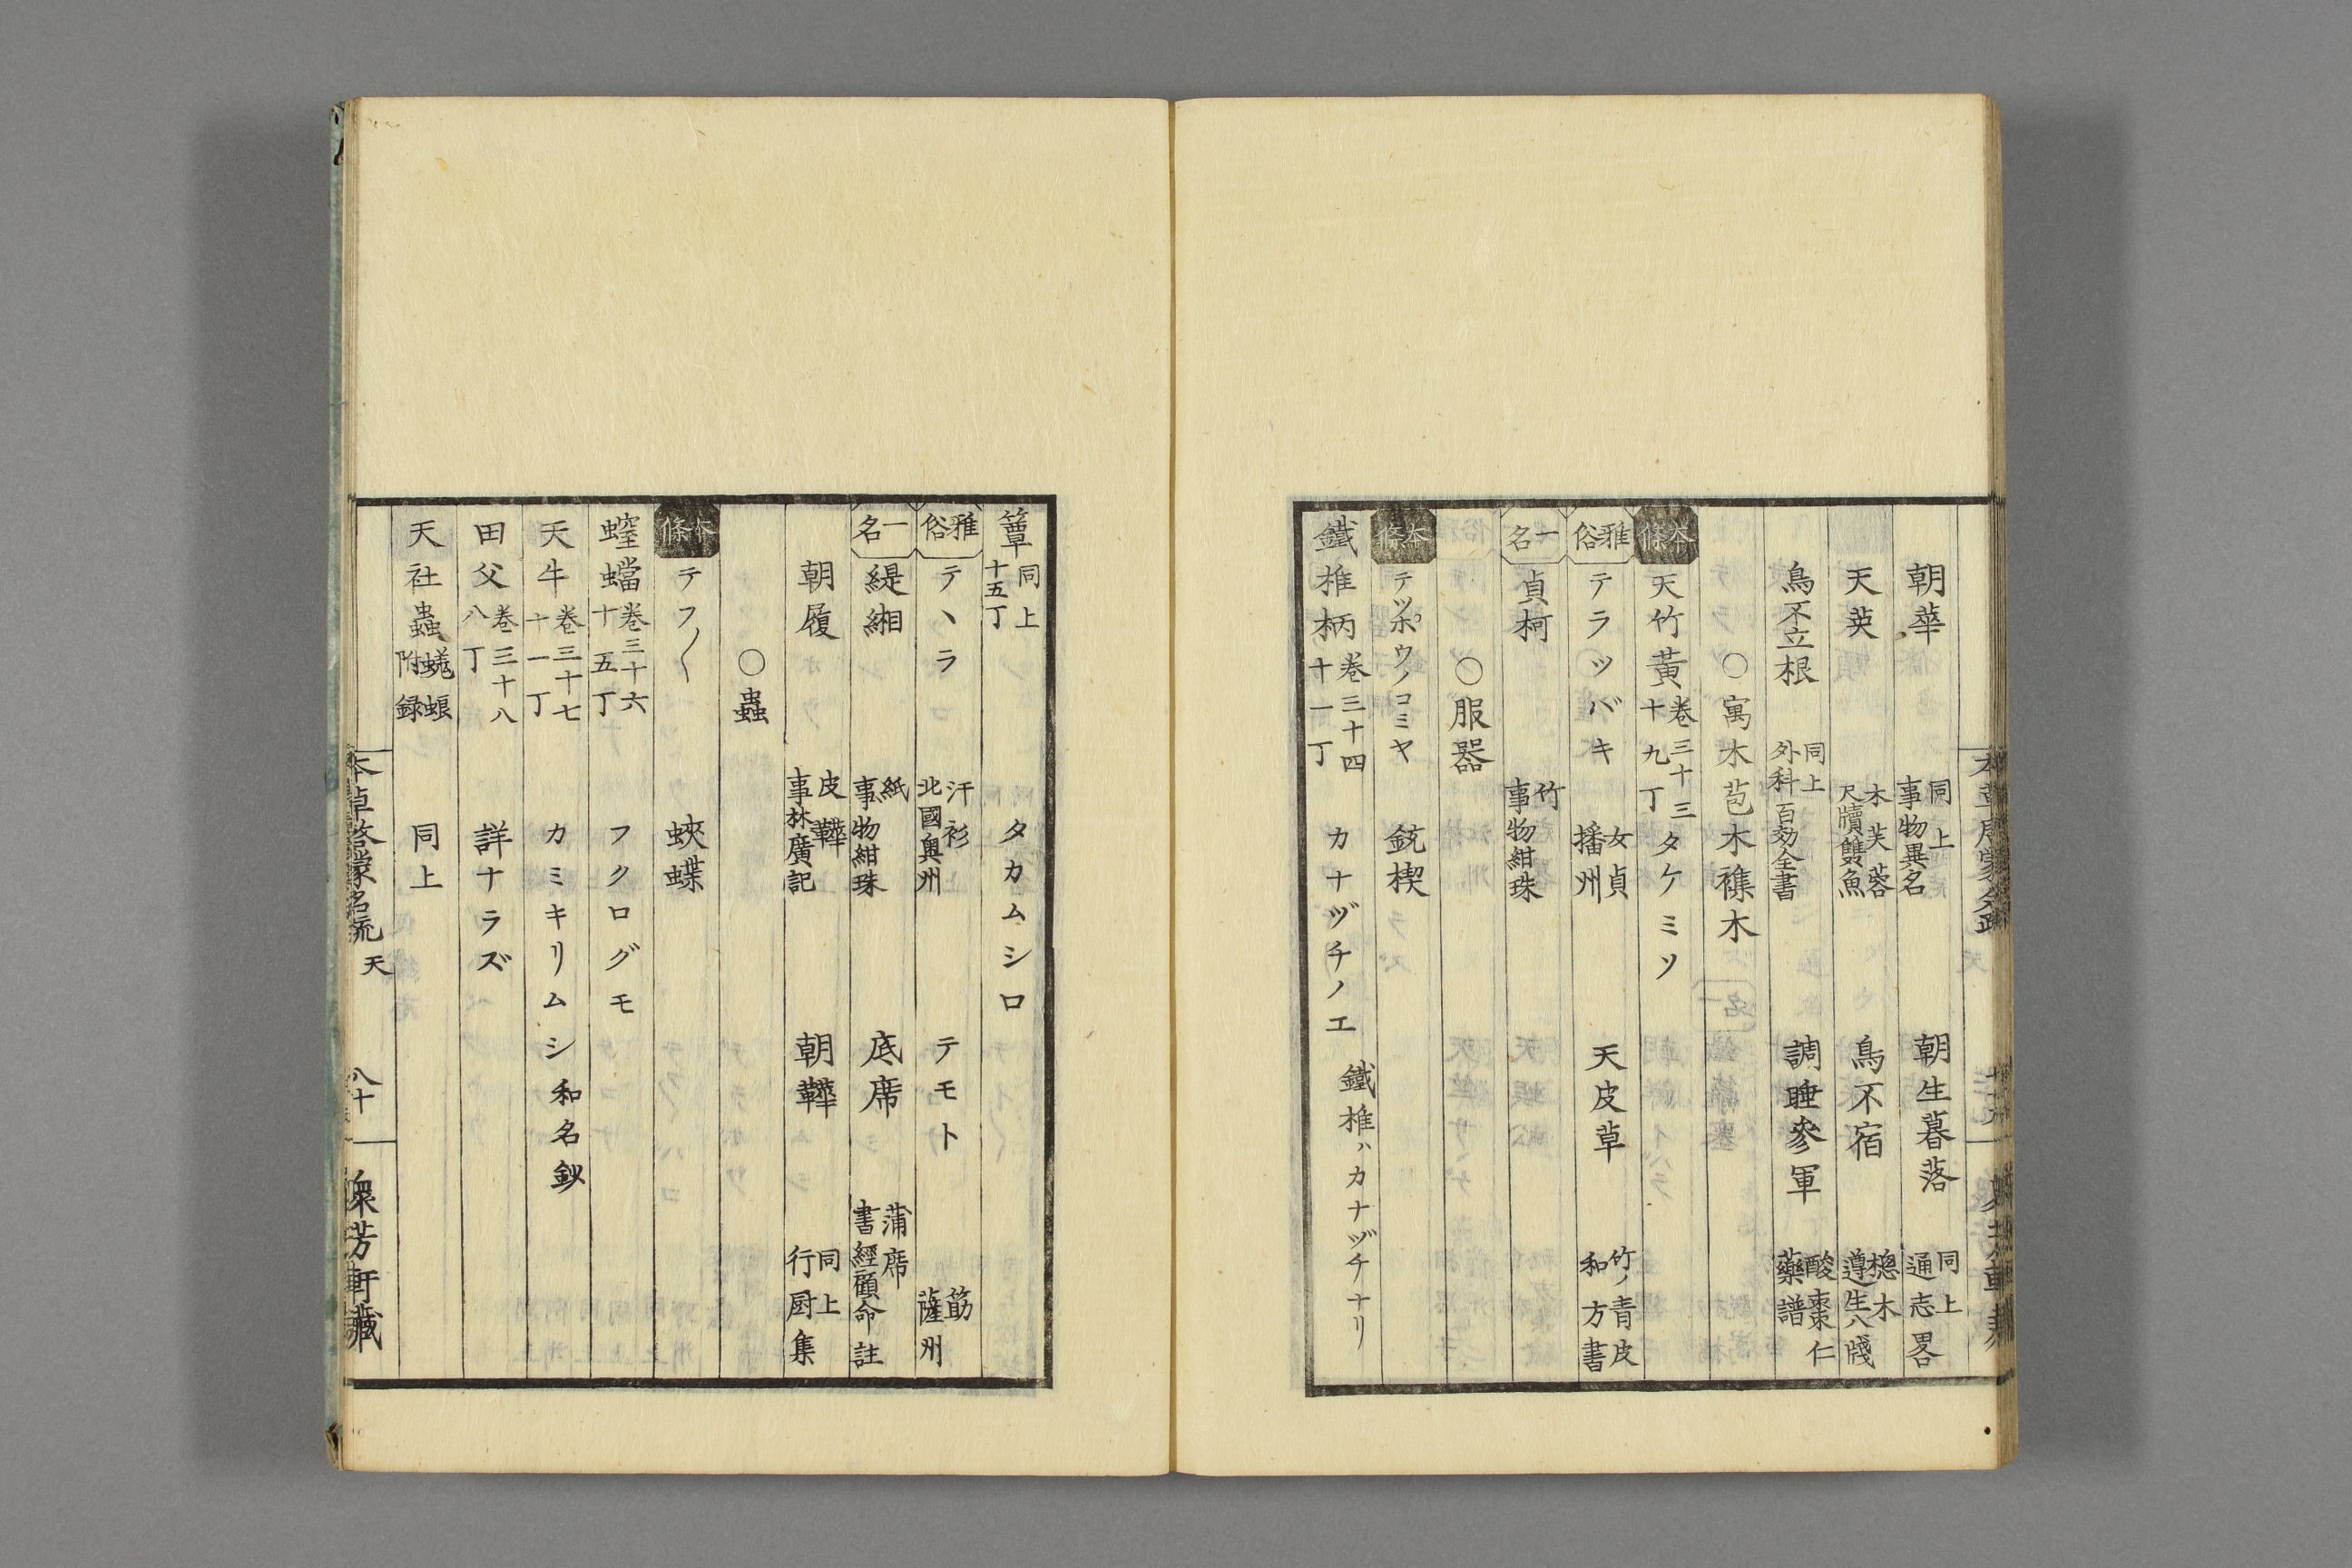 朝蕣 同上 事物異名 朝生暮落 同上 通志畧
天英 木芙蓉 尺牘雙魚 鳥不宿 楤木 遵生八牋
鳥不立根 同上 外科百効全書 調睡參軍 酸棗仁 藥譜
○寓木苞木襍木
本條 天竹黃 卷三十三 十九丁 タケミソ
雅俗 テラツバキ 女貞 播州 天皮草 竹ノ青皮 和方書
一名 貞柯 竹 事物紺珠
○服器
本條 テツポウノコミヤ 銃楔
鐵椎柄 卷三十四 十一丁 カナヅチノエ 鐵椎ハカナヅチナリ
簟 同上 十五丁 タカムシロ
雅俗 テヽラ 汗衫 北國奧州 テモト 筯 薩州
一名 緹緗 紙 事物紺珠 底席 蒲席 書經顧命註
朝履 皮鞾 事林廣記 朝鞾 同上 行厨集
○蟲
本條 テフ〱 蛺蝶
螲蟷 卷三十六 十五丁 フクログモ
天牛 卷三十七 十一丁 カミキリムシ 和名鈔
田父 卷三十八 八丁 詳ナラズ
天社蟲 蛲蜋附録 同上
本草啓蒙名疏 天 八十 衆芳軒藏